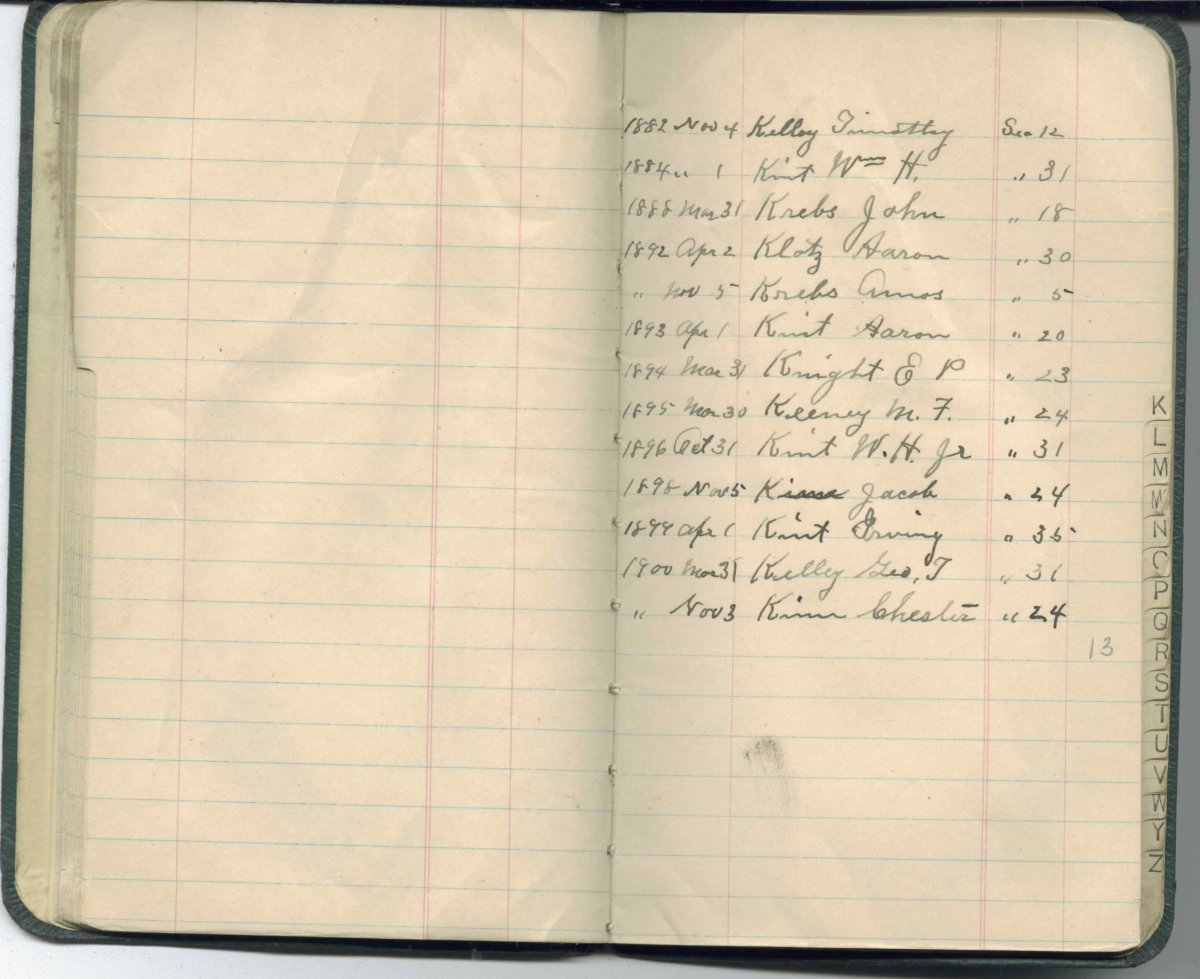 1882 Nov 4 Kelley Timothy Sec 12
1884 〃 1 Kint Wm H. 〃 31
1888 Mar 31 Krebs John 〃 18
1892 Apr 2 Klotz Aaron 〃 30
〃 Nov 5 Krebs Amos 〃 5
1893 Apr 1 Kint Aaron 〃 20
1894 Mar 31 Knight E P 〃 23
1895 Mar 30 Keeney M. F. 〃 24
1896 Oct 31 Kint W. H. Jr 〃 31
1898 Nov 5 Jacob 〃 24
1899 Apr 1 Kint Irving 〃 35
1900 Mar 31 Kelley Geo. T 〃 31
〃 Nov 3 Kinn Chester 〃 24
13
K
L
M
Mc
N
O
P
Q
R
S
T
U
V
W
Y
Z